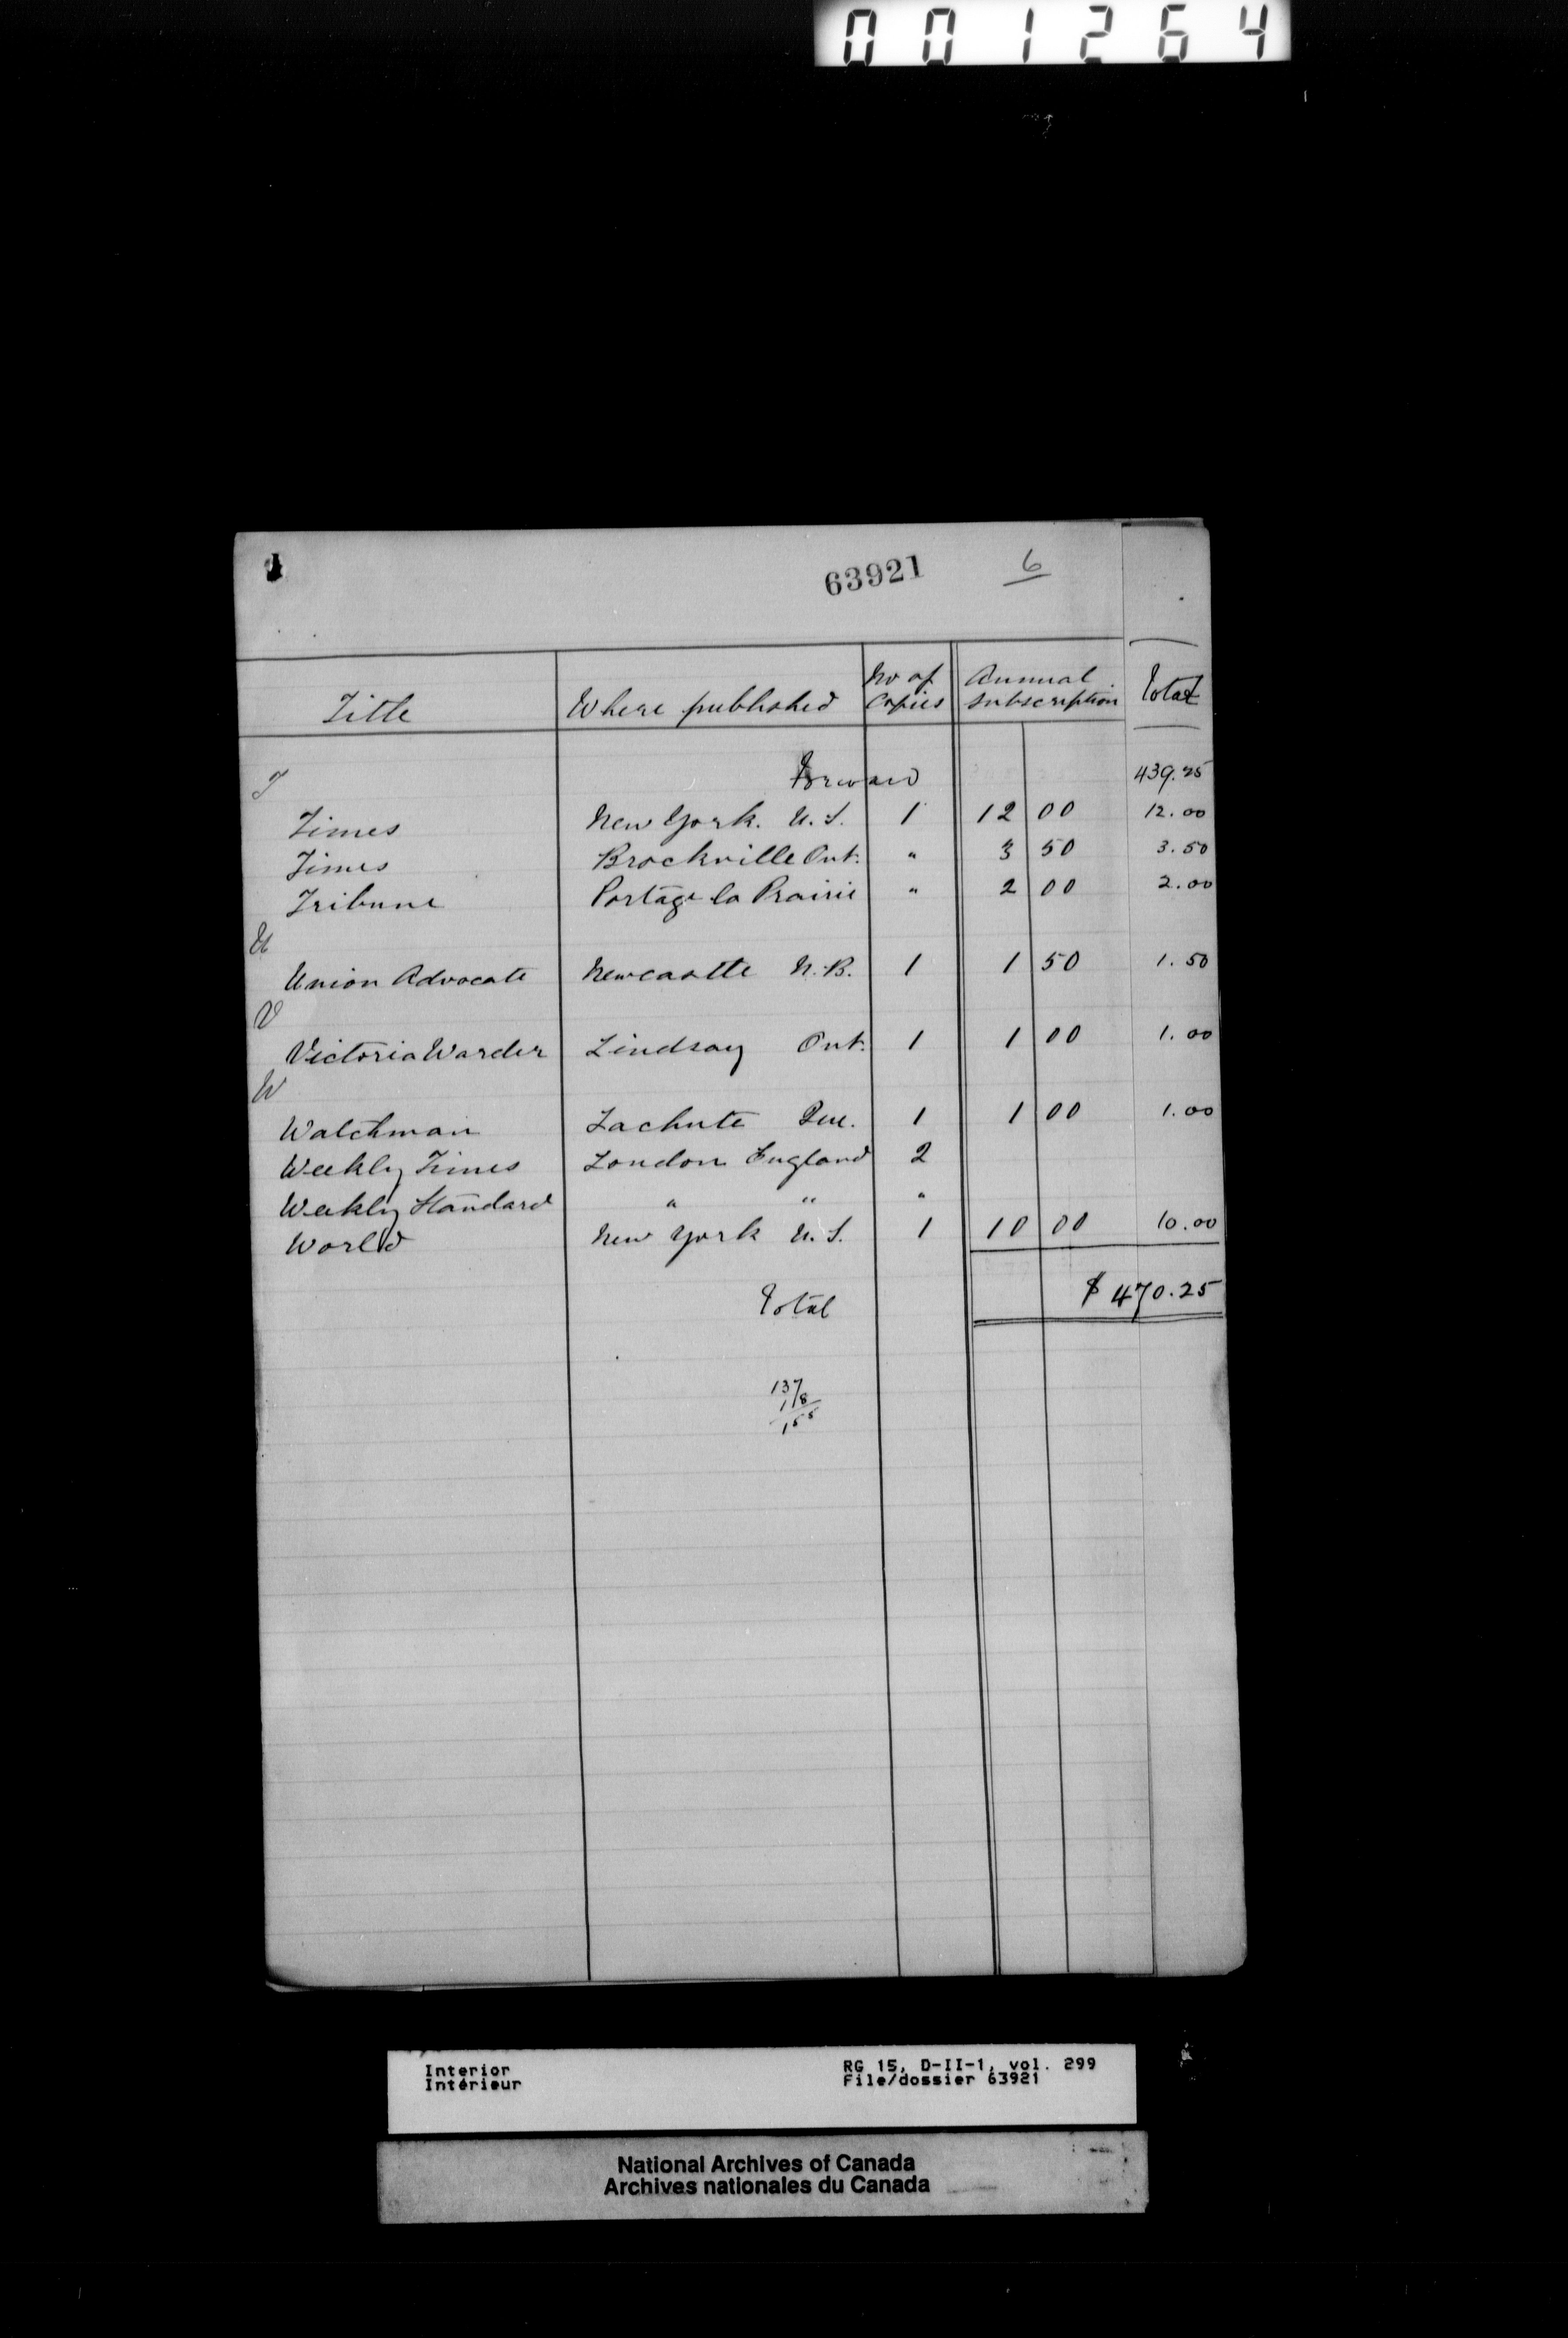 001264
63921 6
Title Where published No of Copies Annual Subscription Total
T Forward 439.25
Times New York. U.S. 1 12 00 12.00
Times Brockville Ont. " 3 50 3.50
Tribune Portage la Prairie " 2 00 2.00
U
Union Advocate Newcastle N.B. 1 1 50 1.50
V
Victoria Warder Lindsay Ont. 1 1 00 1.00
W
Watchman Lachute Que. 1 1 00 1.00
Weekly Times London England 2
Weekly Standard " " "
World New York U.S. 1 10 00 10.00
Total $470.25
137
18
155
Interior RG 15, D-II-1, vol. 299
Intérieur File/dossier 63921
National Archives of Canada
Archives nationales du Canada